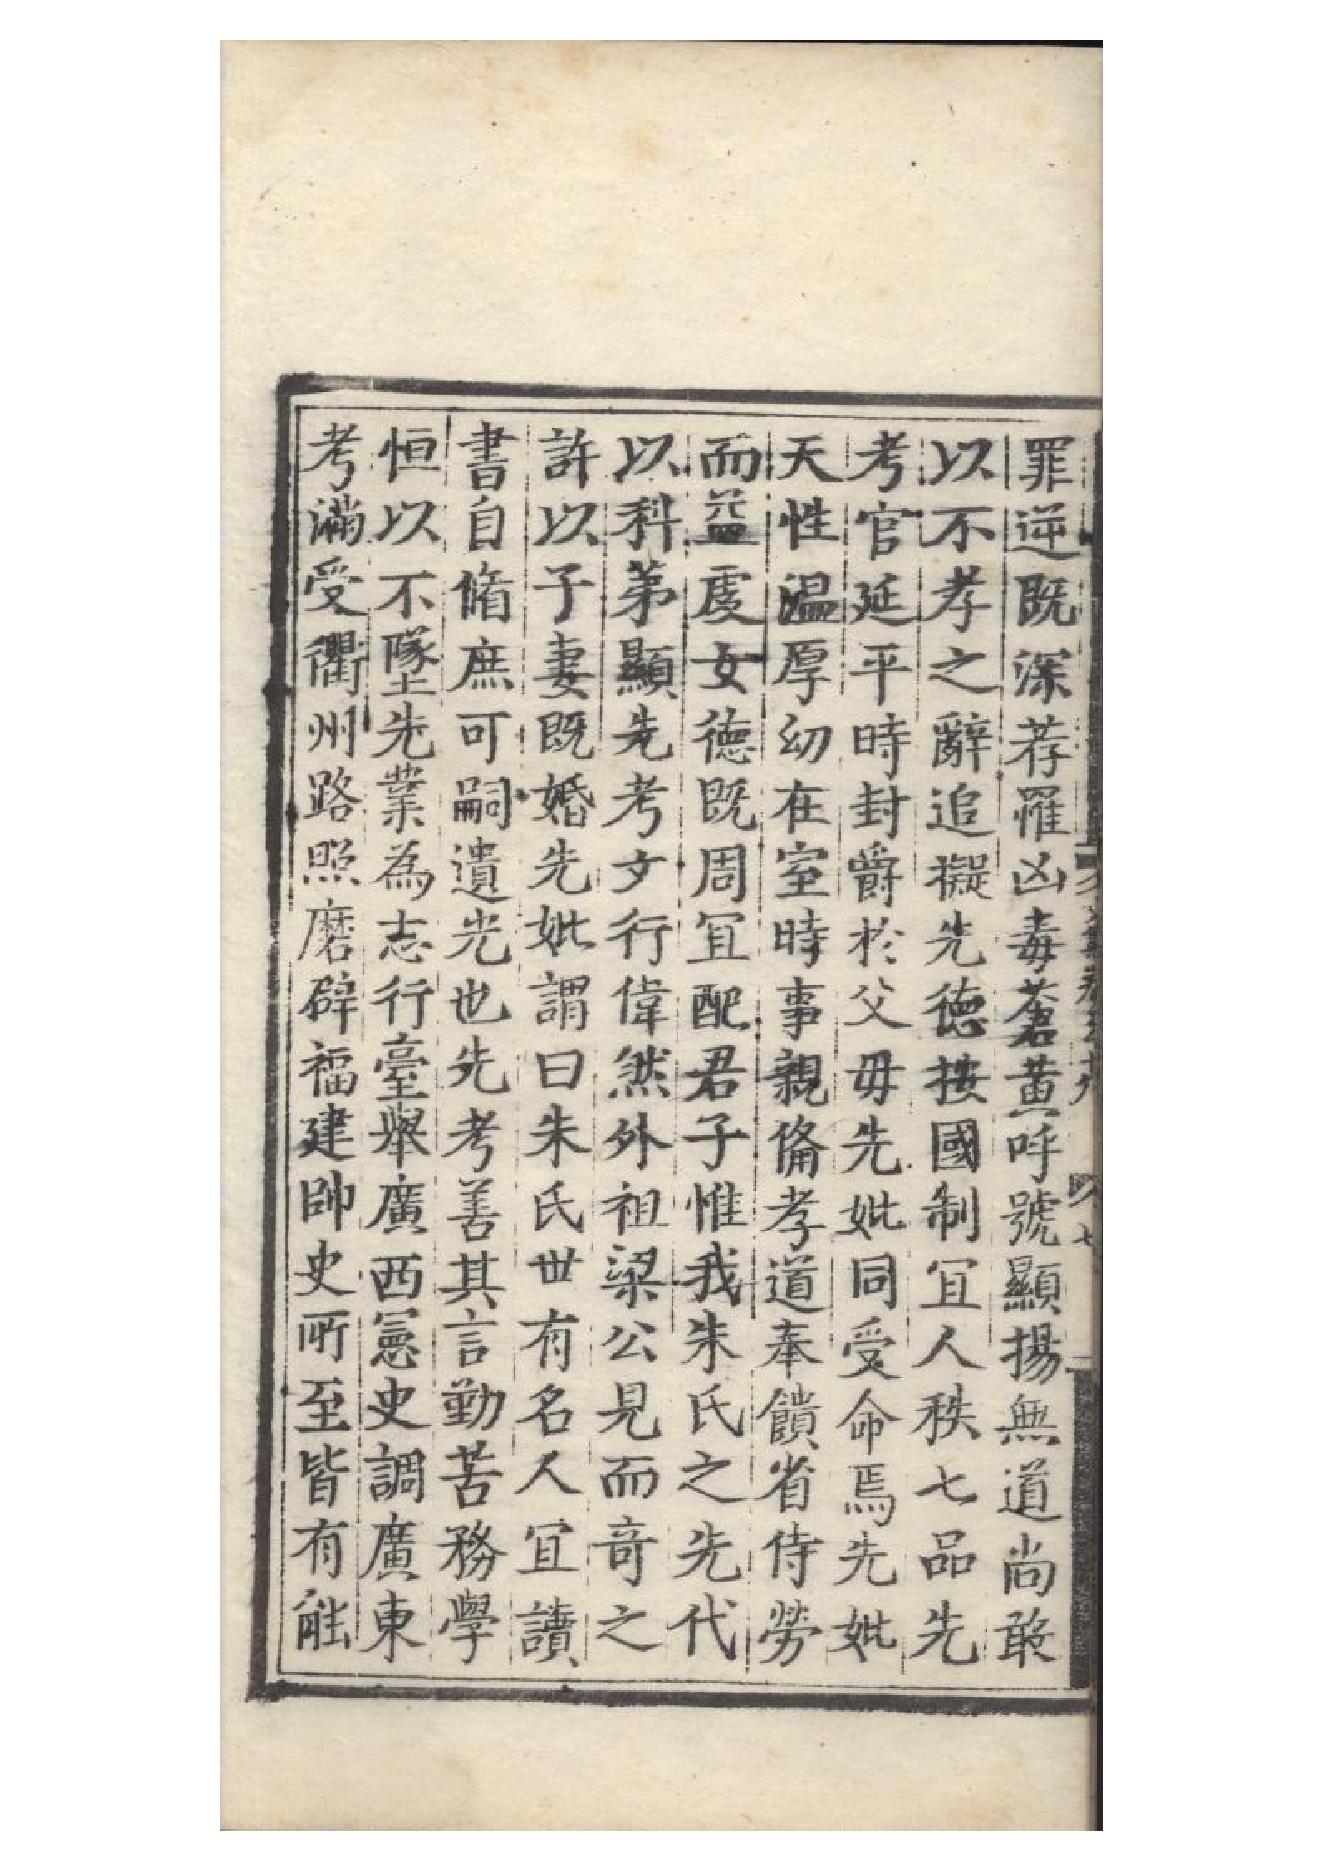 罪逆既深荐罹凶毒蒼黄呼號顯揚無道尚敢
以不孝之辭追擬先德按國制冝人秩七品先
考官延平時封爵於父毋先妣同受命焉先妣
天性温厚幼在室時事親脩孝道奉饋省侍勞
而益虔女德既周冝配君子惟我朱氏之先代
以科苐顯先考文行偉然外祖梁公見而竒之
許以子妻既婚先妣謂曰朱氏世有名人冝讀
書自脩庶可嗣遺光也先考善其言勤苦務學
恒以不墜先業為志行臺舉廣西憲史調廣東
考滿受衢州路照磨辟福建帥史所至皆有能